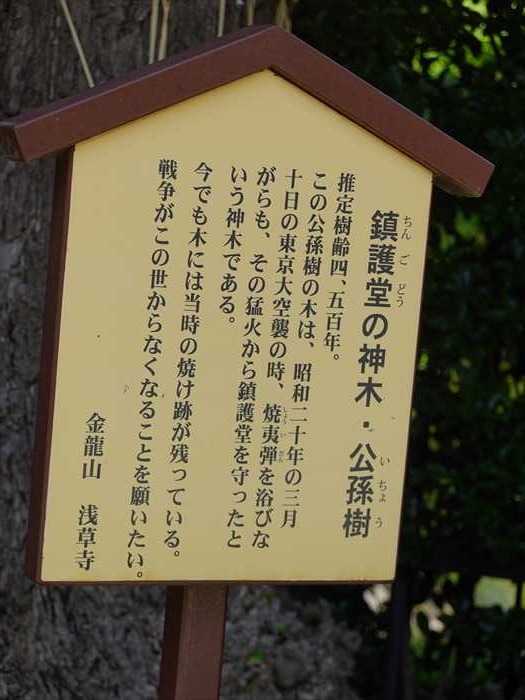 鎮護堂の神木・公孫樹
ちんごどう
いちょう
推定樹齢四、五百年。
この公孫樹の木は、昭和二十年の三月
十日の東京大空襲の時、焼夷弾を浴びな
しょういだん
がらも、その猛火から鎮護堂を守ったと
いう神木である。
今でも木には当時の焼け跡が残っている。
戦争がこの世からなくなることを願いたい。
金龍山 浅草寺